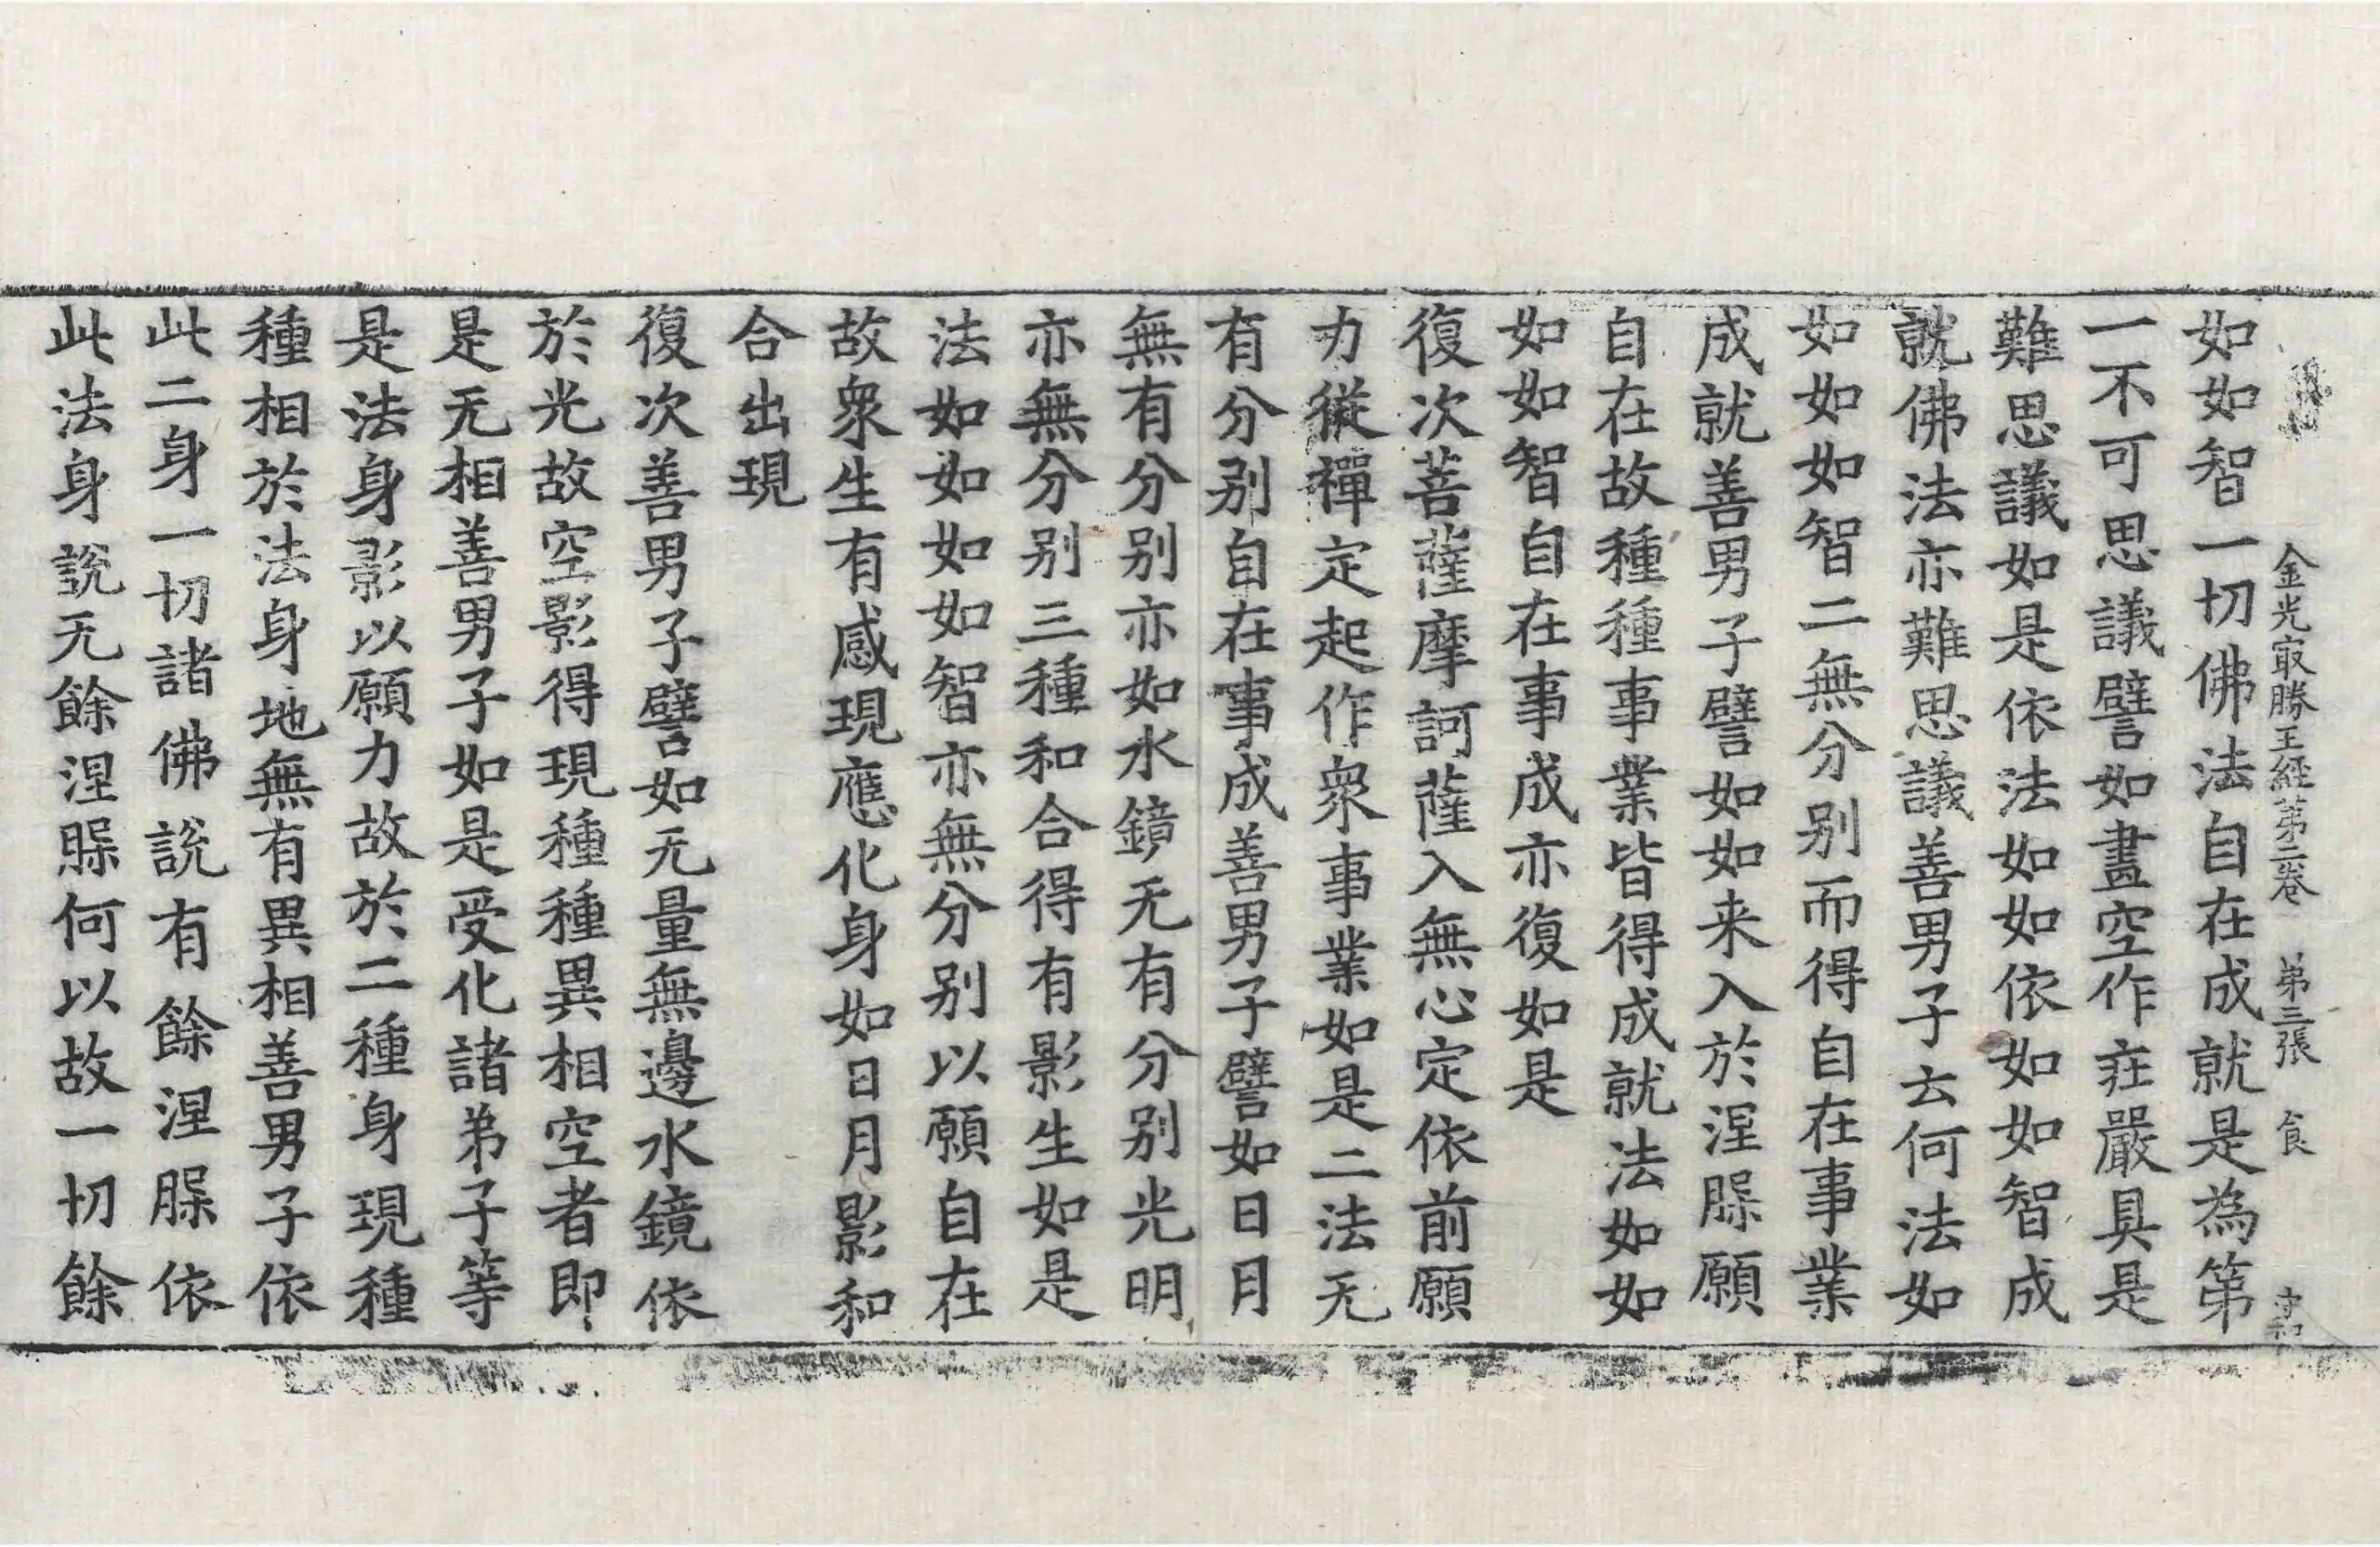 金光㝡勝王經第二卷 第三張 食 守和
如如智一切佛法自在成就是為第
一不可思議譬如畫空作莊嚴具是
難思議如是依法如如依如如智成
就佛法亦難思議善男子云何法如
如如如智二無分别而得自在事業
成就善男子譬如如来入於涅槃願
自在故種種事業皆得成就法如如
如如智自在事成亦復如是
復次菩薩摩訶薩入無心定依前願
力從禪定起作衆事業如是二法无
有分别自在事成善男子譬如日月
無有分别亦如水鏡无有分别光明
亦無分别三種和合得有影生如是
法如如如如智亦無分别以願自在
故衆生有感現應化身如日月影和
合出現
復次善男子譬如无量無邊水鏡依
於光故空影得現種種異相空者即
是无相善男子如是受化諸弟子等
是法身影以願力故於二種身現種
種相於法身地無有異相善男子依
此二身一切諸佛說有餘涅槃依
此法身說无餘涅槃何以故一切餘